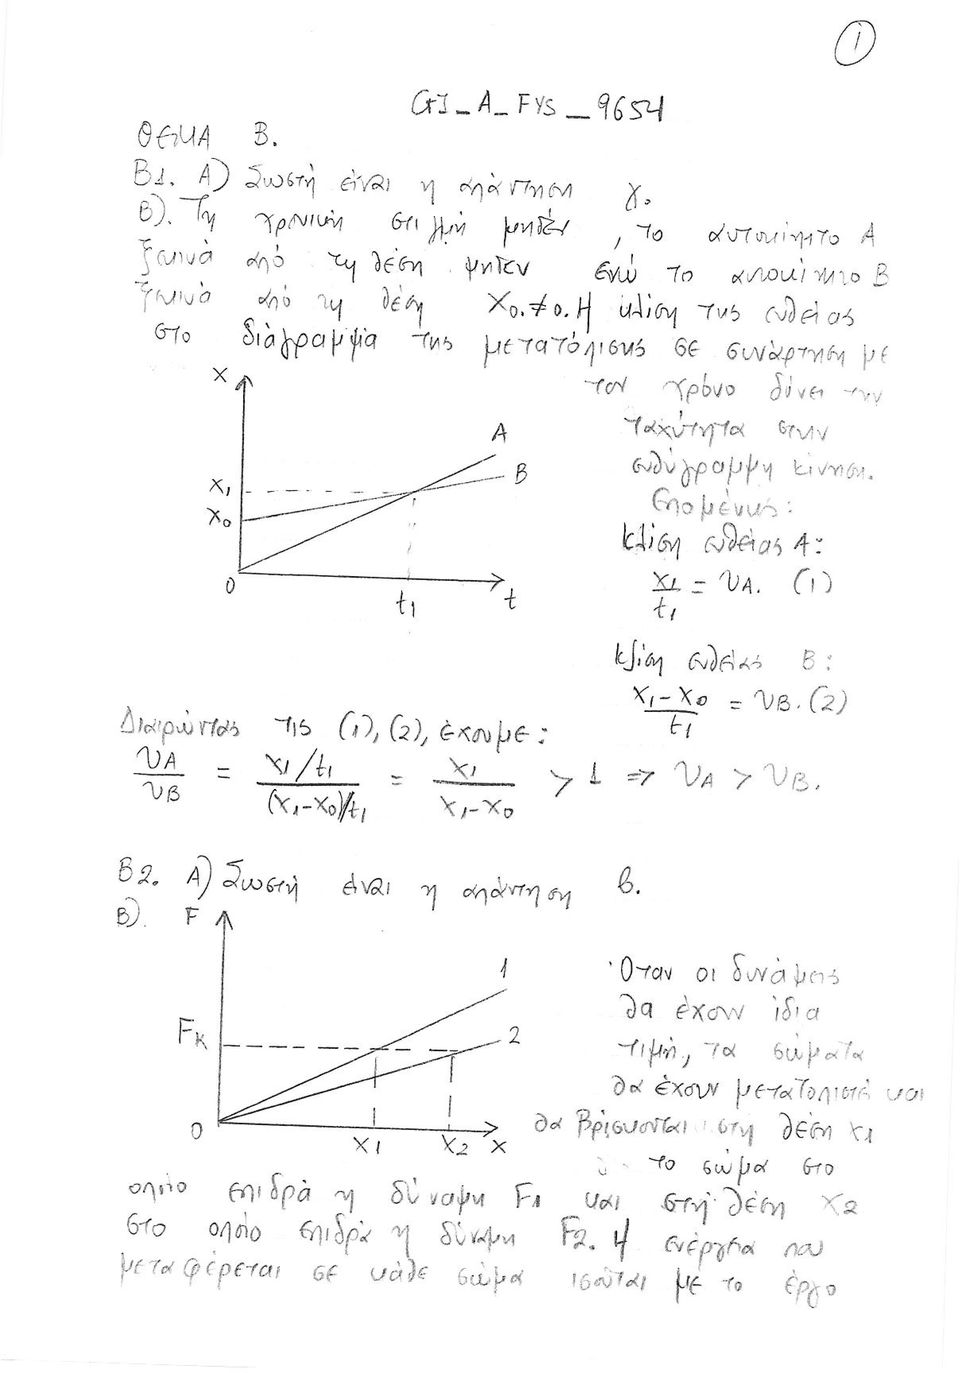 1
GI_A_FYS_9654
ΘΕΜΑ Β.
Β1. Α) Σωστή είναι η απάντηση γ.
Β). Τη χρονική στιγμή μηδέν, το αυτοκίνητο Α
ξεκινά από τη θέση μηδέν ενώ το αυτοκίνητο Β
ξεκινά από τη θέση X₀.≠0. Η κλίση της ευθείας
στο διάγραμμα της μετατόπισης σε συνάρτηση με
τον χρόνο δίνει την
ταχύτητα στην
ευθύγραμμη κίνηση.
Επομένως:
Κλίση ευθείας Α:
x₁/t₁ = υA. (1)
Κλίση ευθείας Β:
x₁-x₀/t₁ = υB. (2)
x
A
B
x₁
x₀
0
t₁
t
Διαιρώντας τις (1), (2), έχουμε:
υA/υB = x₁/t₁/(x₁-x₀)/t₁ = x₁/x₁-x₀ > 1 => υA > υB.
Β2. Α) Σωστή είναι η απάντηση β.
Β).
F
1
2
Fκ
0
x1
x2
x
Όταν οι δυνάμεις
θα έχουν ίδια
τιμή, τα σώματα
θα έχουν μετατοπιστεί και
θα βρίσκονται στη θέση x1
το σώμα στο
οποίο επιδρά η δύναμη F1 και στη θέση x2
στο οποίο επιδρά η δύναμη F2. Η ενέργεια που
μεταφέρεται σε κάθε σώμα ισούται με το έργο